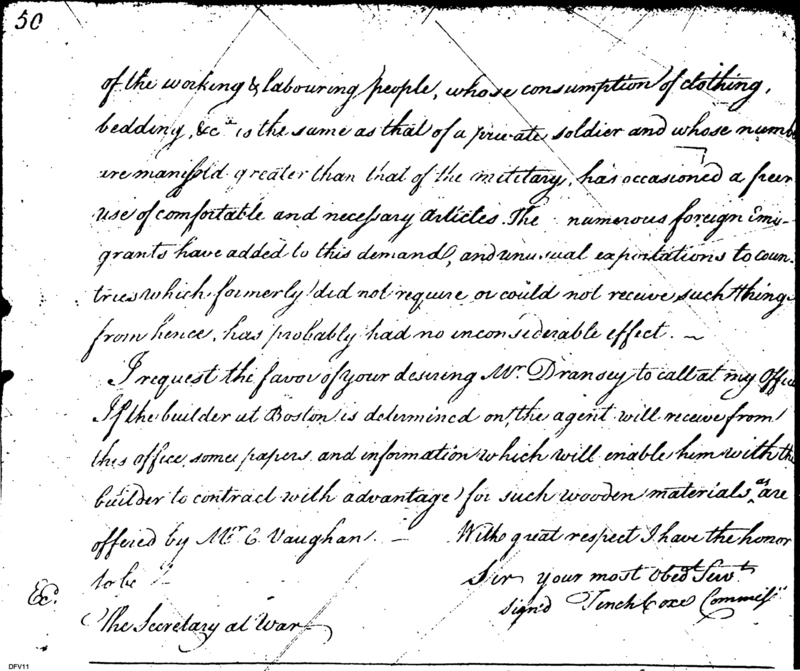 50
of the working & labouring people, whose consumption of clothing,
bedding, &ca is the same as that of a private soldier and whose numb
are manifold greater than that of the military, has occasioned a freer
use of comfortable and necessary articles. The numerous foreign Emi-
grants have added to this demand, and unusual exportations to coun-
tries which formerly did not require or could not receive such things
from hence, has probably had no inconsiderable effect. ~
I request the favor of your desiring Mr. Dransey to call at my Office
If the builder at Boston is determined on, the agent will receive from
this office some papers and information which will enable him with the
builder to contract with advantage for such wooden materials as are
offered by Mr. C. Vaughan. — With great respect I have the honor
to be
Sir your most Obedt Servt
&c. signd Tench Coxe Commissr
The Secretary at War
DFV11